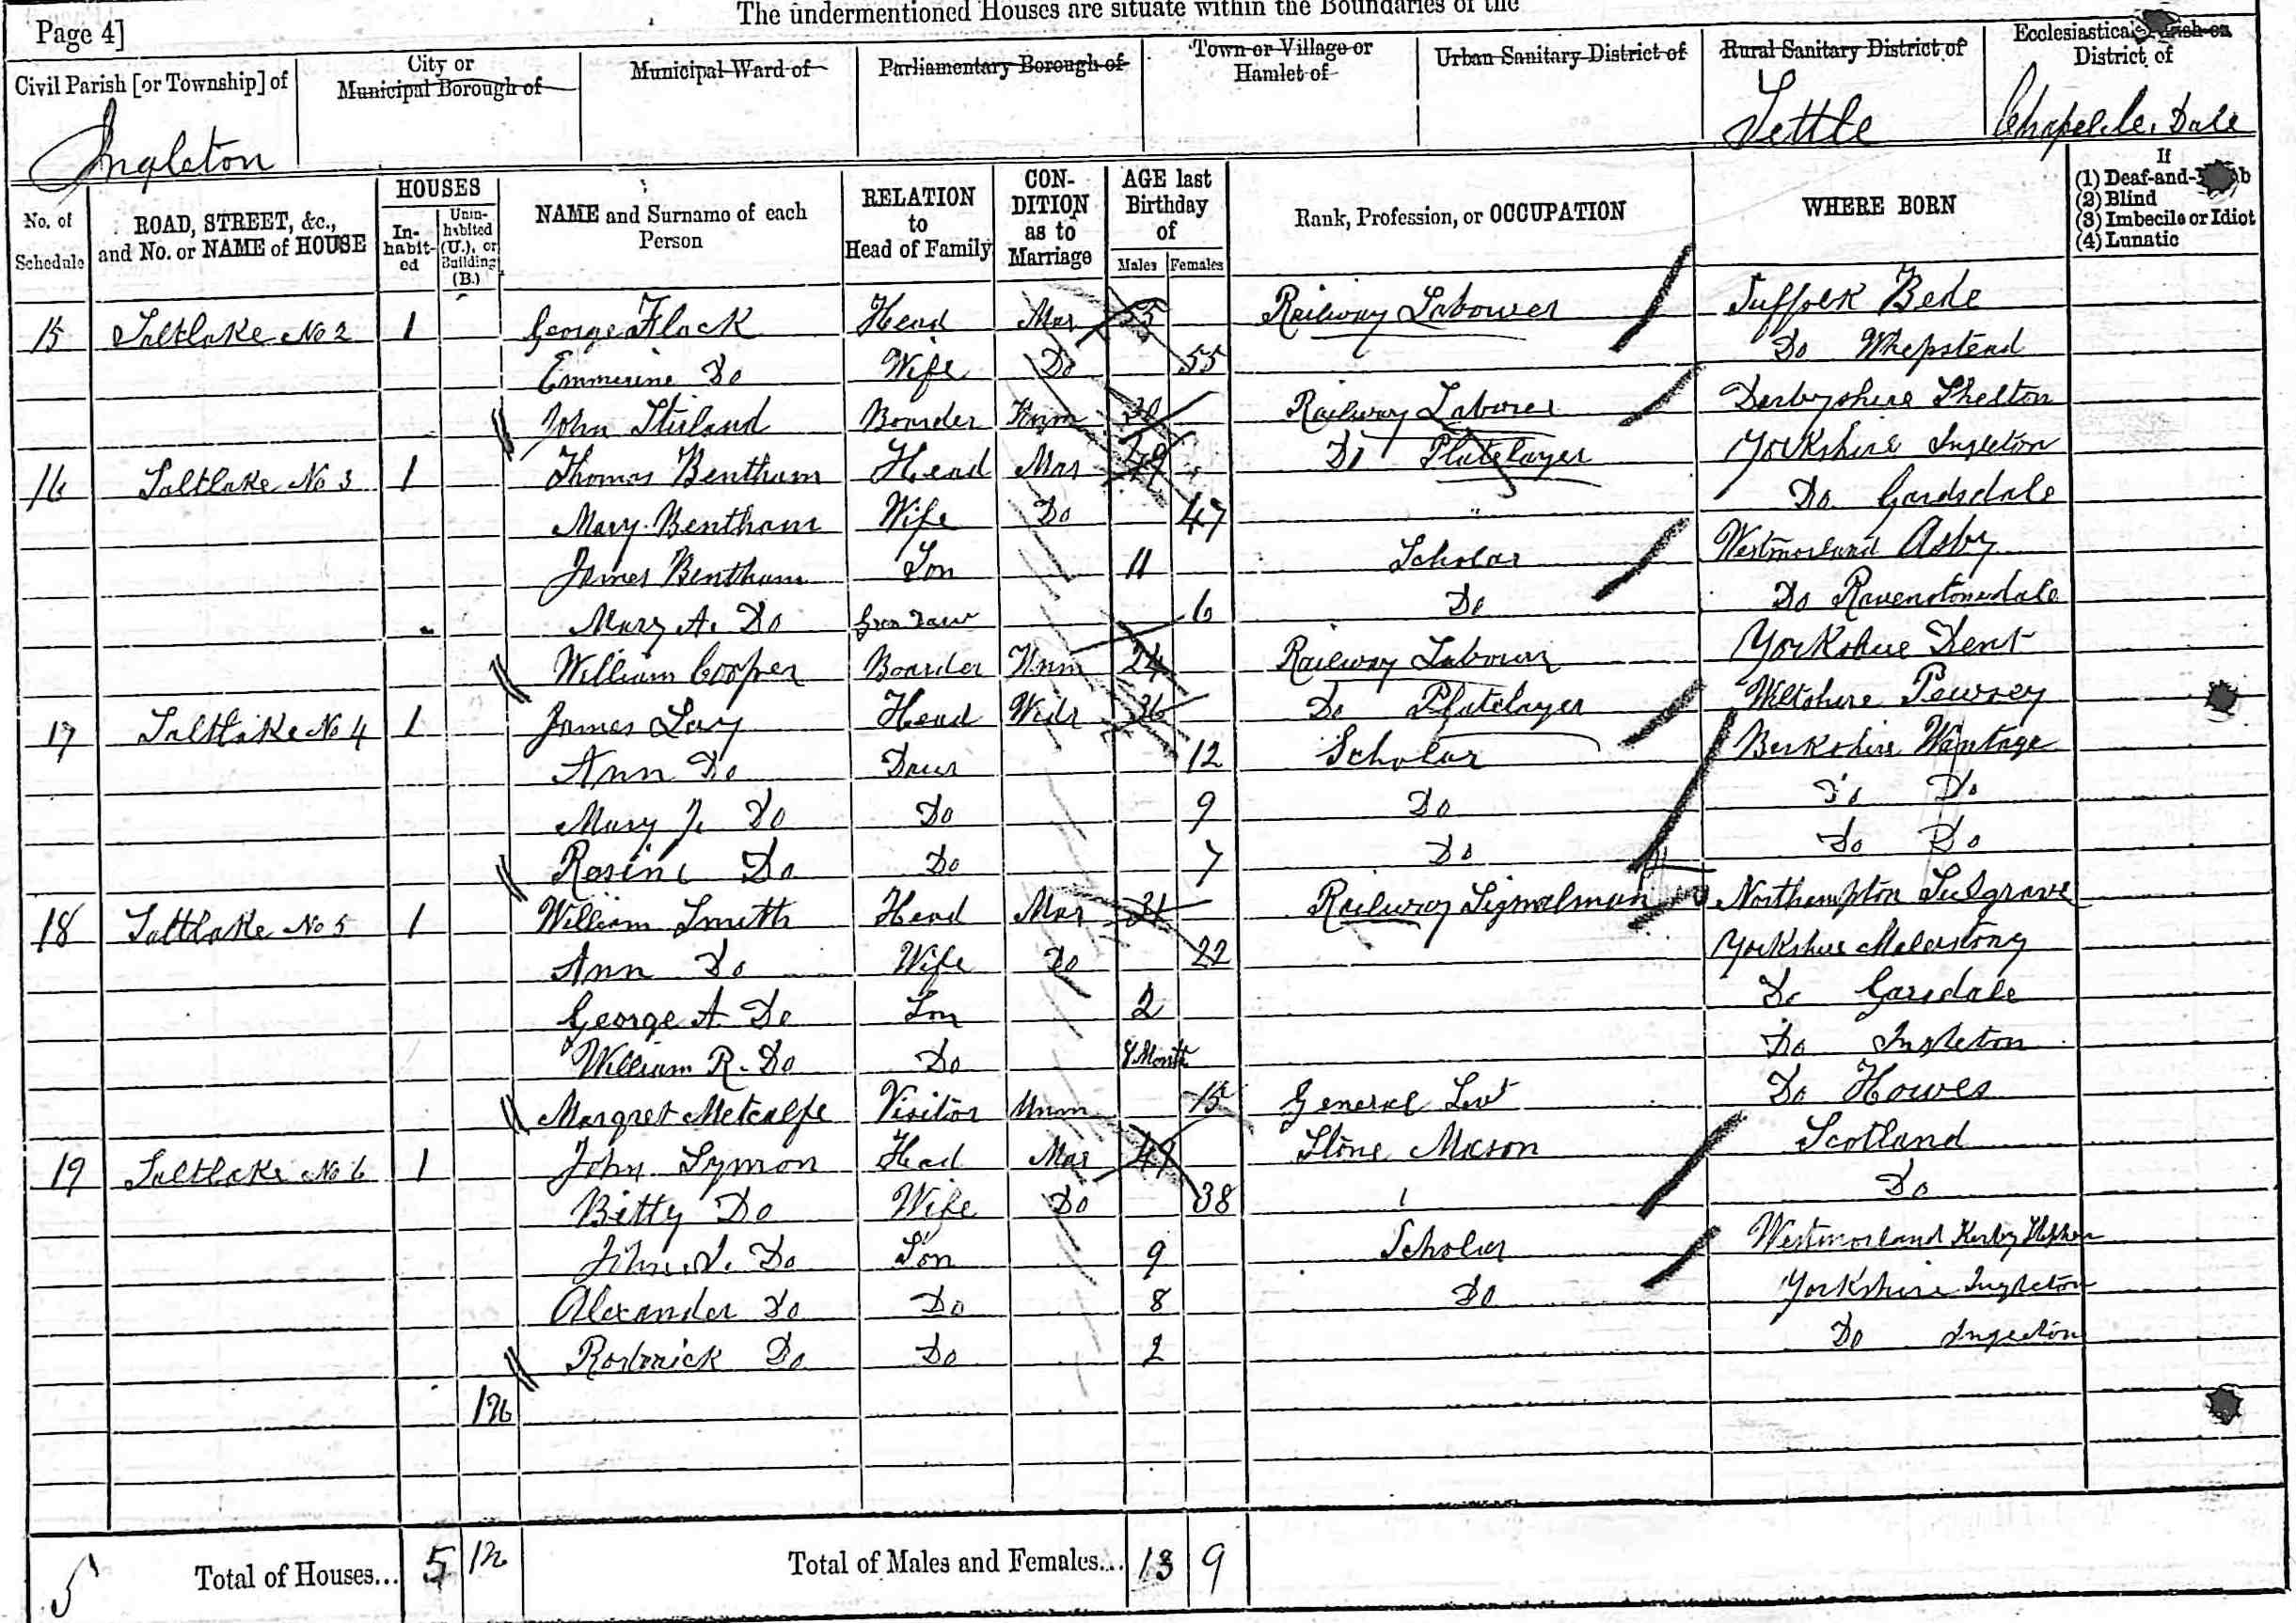 The undermentioned Houses are situate within the Boundaries of the
Page 4]
Civil Parish [or Township] of
City or Municipal Borough of
Municipal Ward of
Parliamentary Borough of
Town or Village or Hamlet of
Urban Sanitary District of
Rural Sanitary District of
Ecclesiastical Parish or District of
Ingleton Settle Chapel le Dale
No. of Schedule
ROAD, STREET, &c., and No. or NAME of HOUSE
HOUSES
In-habit-ed
Unin-habited (U.), or Building (B.)
NAME and Surname of each Person
RELATION to Head of Family
CON-DITION as to Marriage
AGE last Birthday of
Males Females
Rank, Profession, or OCCUPATION
WHERE BORN
If
(1) Deaf-and-Dumb
(2) Blind
(3) Imbecile or Idiot
(4) Lunatic
15 Saltlake No 2 1 George Flack Head Mar 55 Railway Labourer Suffolk Bede
Emmerine Do Wife Do 55 Do Whepstead
John Stirland Boarder Unm Railway Labourer Derbyshire Shelton
16 Saltlake No 3 1 Thomas Bentham Head Mar Do Platelayer Yorkshire Ingleton
Mary Bentham Wife Do 47 Do Gardsdale
James Bentham Son 11 Scholar Westmorland Asby
Mary A. Do Gran Daur 6 Do Do Ravenstonedale
William Cooper Boarder Unm 24 Railway Labourer Yorkshire Dent
17 Saltlake No 4 1 James Lay Head Widr 36 Do Platelayer Wiltshire Pewsey
Ann Do Daur 12 Scholar Berkshire Wantage
Mary J. Do Do 9 Do Do Do
Rosina Do Do 7 Do Do Do
18 Saltlake No 5 1 William Smith Head Mar 31 Railway Signalman Northampton Sulgrave
Ann Do Wife Do 22 Yorkshire Malerstong
George A. Do Son 2 Do Garsdale
William R. Do Do 8 Month Do Ingleton
Margret Metcalfe Visitor Unm 15 General Servt Do Hawes
19 Saltlake No 6 1 John Symon Head Mar 49 Stone Mason Scotland
Bitty Do Wife Do 38 Do
John S. Do Son 9 Scholar Westmorland Kirby Stephen
Alexander Do Do 8 Do Yorkshire Ingleton
Roderick Do Do 2 Do Ingleton
126
5 Total of Houses... 5 Total of Males and Females... 13 9